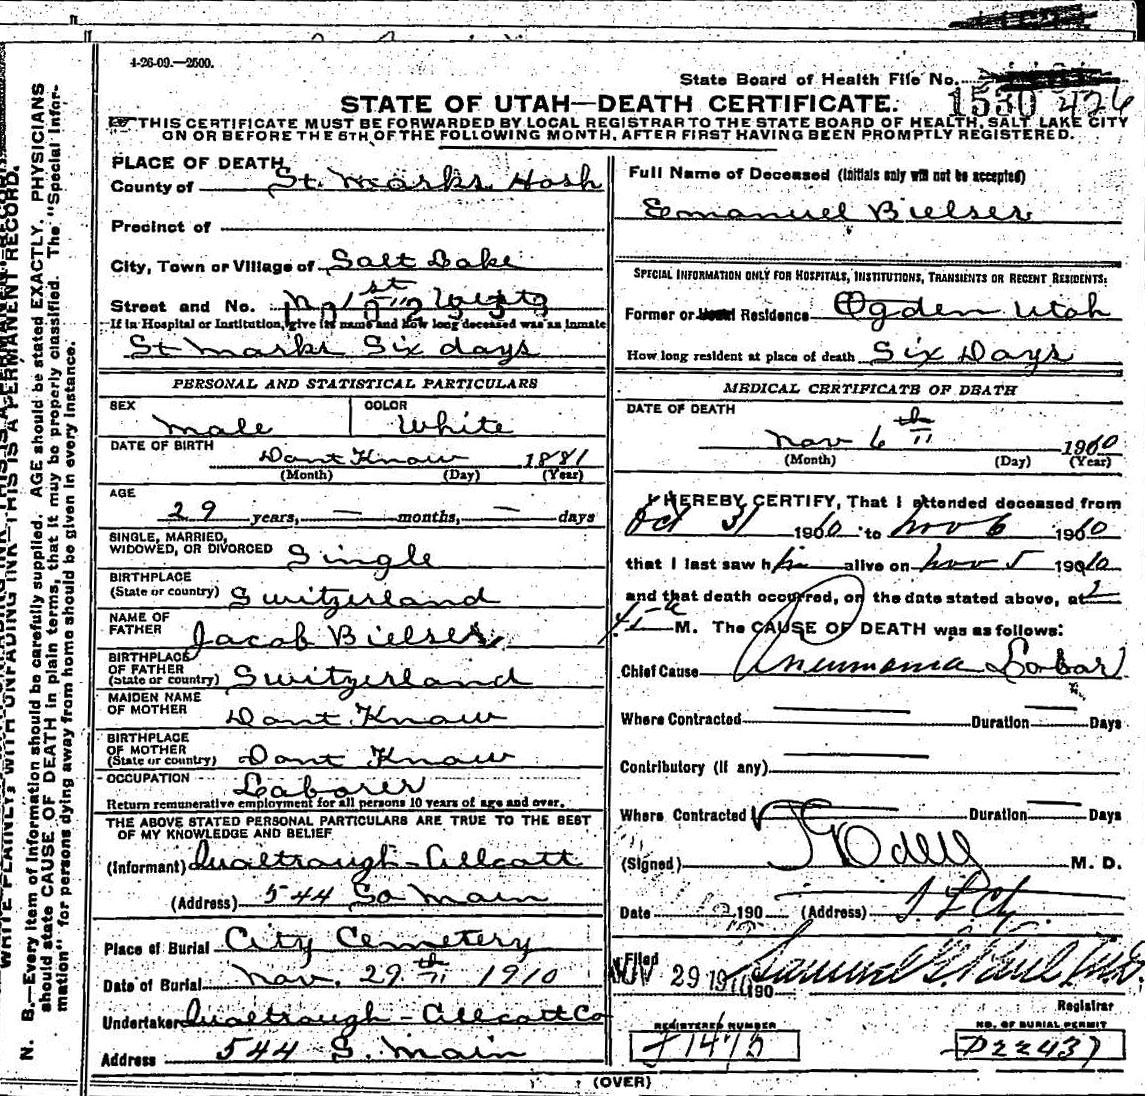 4-26-09.—2500.
State Board of Health File No.
1530 426
STATE OF UTAH—DEATH CERTIFICATE.
THIS CERTIFICATE MUST BE FORWARDED BY LOCAL REGISTRAR TO THE STATE BOARD OF HEALTH, SALT LAKE CITY
ON OR BEFORE THE 5TH OF THE FOLLOWING MONTH, AFTER FIRST HAVING BEEN PROMPTLY REGISTERED.
PLACE OF DEATH
County of St. Marks Hosp
Precinct of
City, Town or Village of Salt Lake
Street and No.
If in Hospital or Institution, give its name and how long deceased was an inmate
St Marks Six days
PERSONAL AND STATISTICAL PARTICULARS
SEX Male COLOR White
DATE OF BIRTH Dont Know 1881
(Month) (Day) (Year)
AGE
29 years, — months, — days
SINGLE, MARRIED,
WIDOWED, OR DIVORCED Single
BIRTHPLACE
(State or country) Switzerland
NAME OF
FATHER Jacob Bielser
BIRTHPLACE
OF FATHER
(State or country) Switzerland
MAIDEN NAME
OF MOTHER Dont Know
BIRTHPLACE
OF MOTHER
(State or country) Dont Know
OCCUPATION Laborer
Return remunerative employment for all persons 10 years of age and over.
THE ABOVE STATED PERSONAL PARTICULARS ARE TRUE TO THE BEST
OF MY KNOWLEDGE AND BELIEF
(Informant) Qualtrough-Allcott
(Address) 544 So Main
Place of Burial City Cemetery
Date of Burial Nov. 29th 1910
Undertaker Qualtrough-Allcott Co
Address 544 S. Main
Full Name of Deceased (Initials only will not be accepted)
Emanuel Bielser
SPECIAL INFORMATION ONLY FOR HOSPITALS, INSTITUTIONS, TRANSIENTS OR RECENT RESIDENTS:
Former or Usual Residence Ogden Utah
How long resident at place of death Six Days
MEDICAL CERTIFICATE OF DEATH
DATE OF DEATH
Nov 6th 1910
(Month) (Day) (Year)
I HEREBY CERTIFY, That I attended deceased from
Oct 31 1910 to Nov 6 1910
that I last saw him alive on Nov 5 1910
and that death occurred, on the date stated above, at
M. The CAUSE OF DEATH was as follows:
Chief Cause Pneumonia Lobar
Where Contracted Duration Days
Contributory (if any)
Where Contracted Duration Days
(Signed) Odell M. D.
Date 190 (Address)
Filed
NOV 29 1910 190 Samuel G. Paul
Registrar
REGISTERED NUMBER
1475
NO. OF BURIAL PERMIT
D22437
(OVER)
WRITE PLAINLY, WITH UNFADING INK—THIS IS A PERMANENT RECORD.
N. B.—Every item of information should be carefully supplied. AGE should be stated EXACTLY. PHYSICIANS
should state CAUSE OF DEATH in plain terms, that it may be properly classified. The "Special Infor-
mation" for persons dying away from home should be given in every instance.